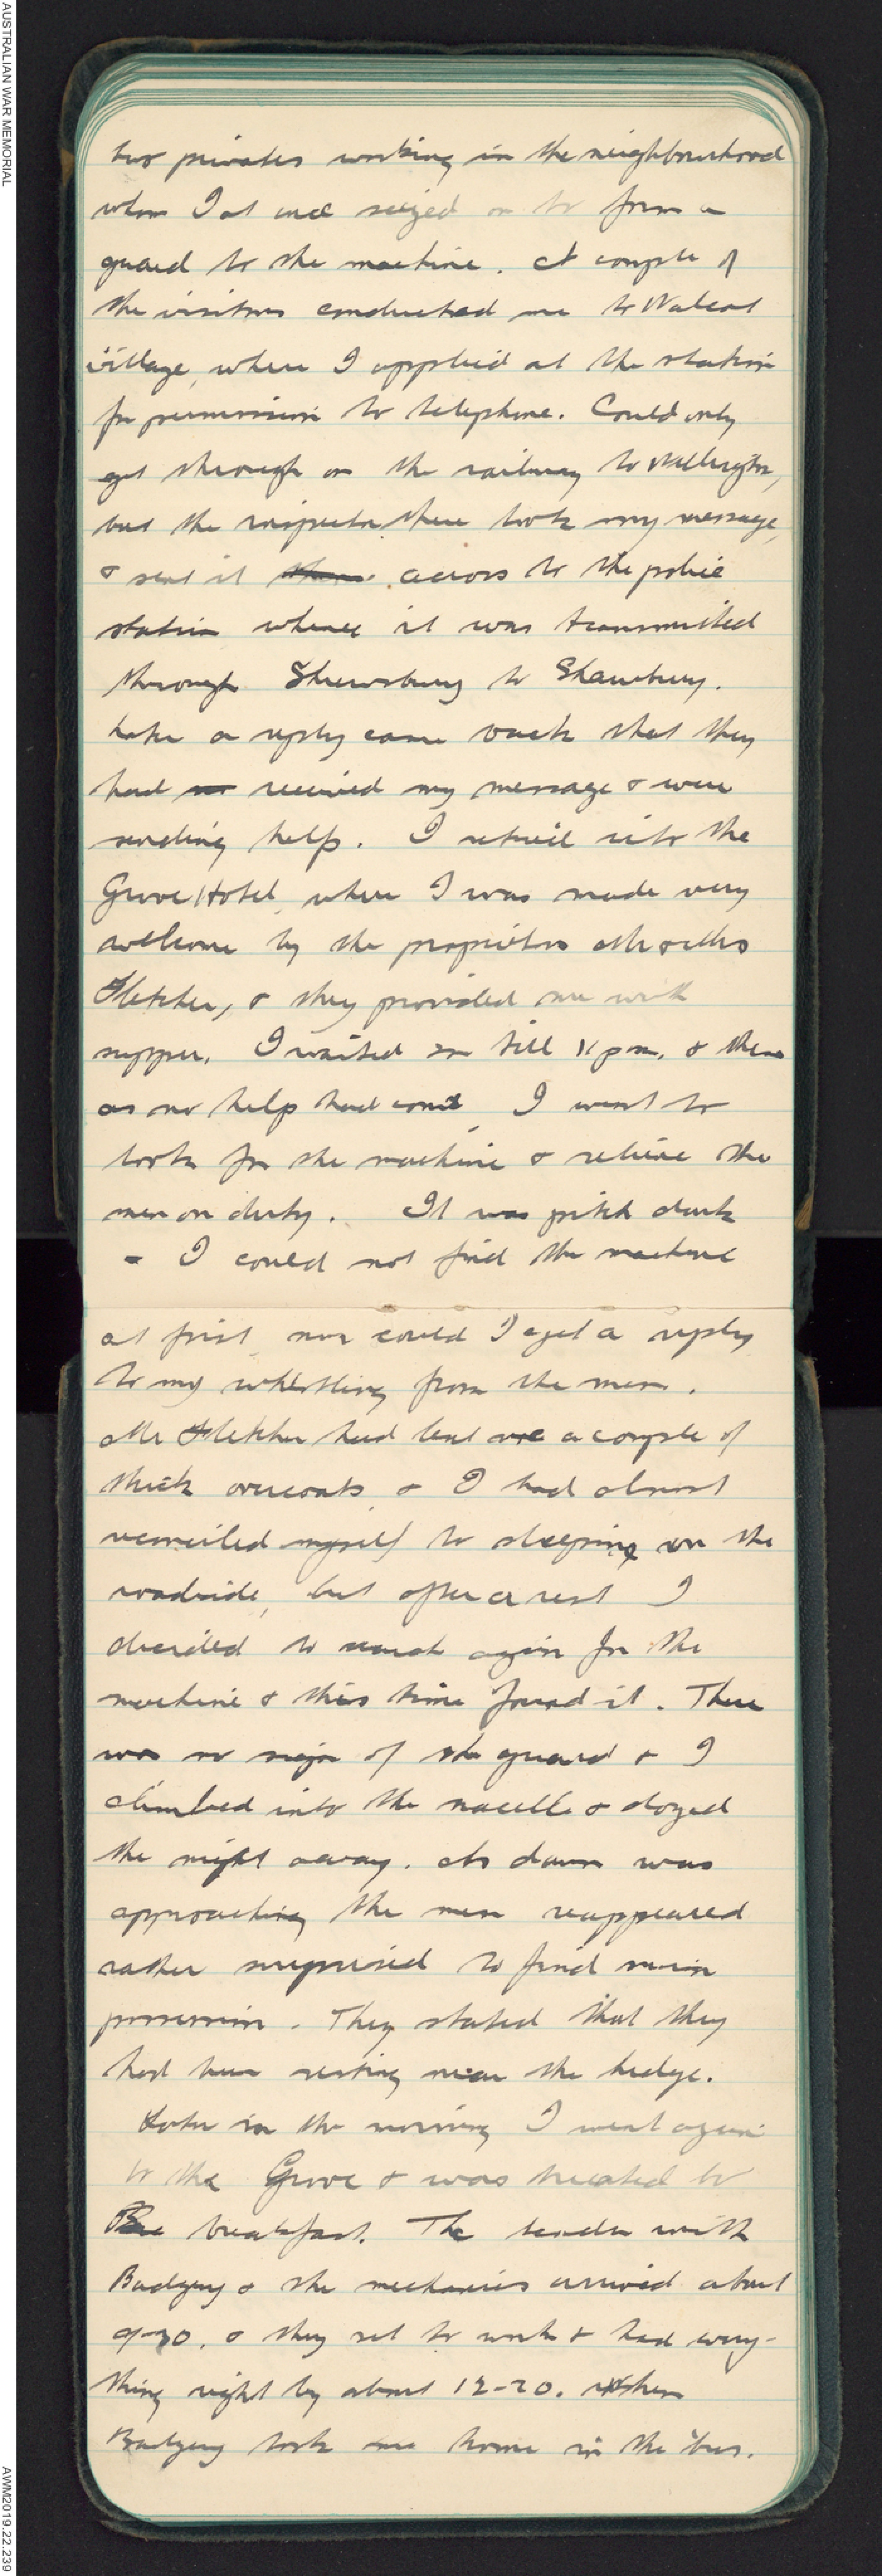 AUSTRALIAN WAR MEMORIAL
two privates working in the neighbourhood
whom I at once seized on to form a
guard to the machine. A couple of
the visitors conducted me to Walcot
village, where I applied at the station
for permission to telephone. Could only
get through on the railway to Wellington,
but the inspector there took my message,
& sent it across to the police
station whence it was transmitted
through Shrewsbury to Shawbury.
Later a reply came back that they
had received my message & were
sending help. I retired into the
Grove Hotel, where I was made very
welcome by the proprietors Mr & Mrs
Fletcher, & they provided me with
supper. I waited on till 11 pm. & then
as no help had come, I went to
look for the machine & relieve the
men on duty. It was pitch dark
& I could not find the machine
at first, nor could I get a reply
to my whistling from the men.
Mr Fletcher had lent me a couple of
thick overcoats, & I had almost
reconciled myself to sleeping on the
roadside, but after a rest I
decided to search again for the
machine & this time found it. There
was no sign of the guard & I
climbed into the nacelle & dozed
the night away. As dawn was
approaching the men reappeared
rather surprised to find me in
possession. They stated that they
had been resting near the hedge.
Later in the morning I went again
to the Grove & was treated to
breakfast. The tender with
Badgery & the mechanics arrived about
9-30, & they set to work & had every-
thing right by about 12-20. when
Badgery took me home in the 'bus.
AWM2019.22.239